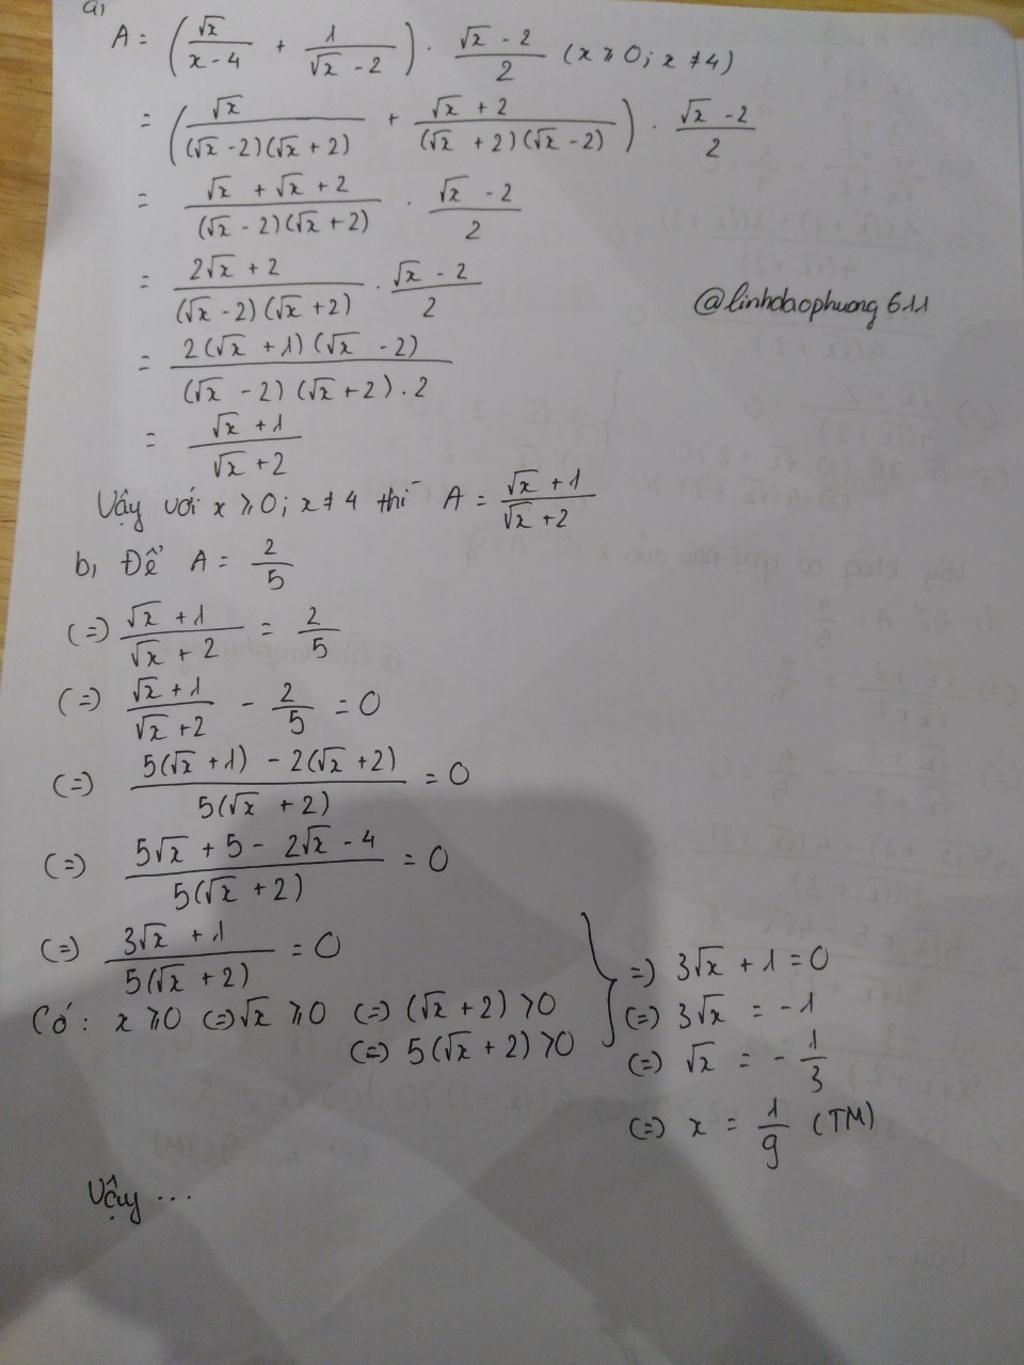 a,
A = (√x / (x - 4) + 1 / (√x - 2)) · (√x - 2) / 2 (x ⩾ 0; x ≠ 4)
= (√x / ((√x - 2)(√x + 2)) + (√x + 2) / ((√x + 2)(√x - 2))) · (√x - 2) / 2
= (√x + √x + 2) / ((√x - 2)(√x + 2)) · (√x - 2) / 2
= (2√x + 2) / ((√x - 2)(√x + 2)) · (√x - 2) / 2
@linhdaophuong611
= 2(√x + 1)(√x - 2) / ((√x - 2)(√x + 2) · 2)
= (√x + 1) / (√x + 2)
Vậy với x ⩾ 0; x ≠ 4 thì A = (√x + 1) / (√x + 2)
b, Để A = 2/5
(=) (√x + 1) / (√x + 2) = 2/5
(=) (√x + 1) / (√x + 2) - 2/5 = 0
(=) (5(√x + 1) - 2(√x + 2)) / (5(√x + 2)) = 0
(=) (5√x + 5 - 2√x - 4) / (5(√x + 2)) = 0
(=) (3√x + 1) / (5(√x + 2)) = 0
Có: x ⩾ 0 (=) √x ⩾ 0 (=) (√x + 2) > 0
(=) 5(√x + 2) > 0
=) 3√x + 1 = 0
(=) 3√x = -1
(=) √x = -1/3
(=) x = 1/9 (TM)
Vậy ...